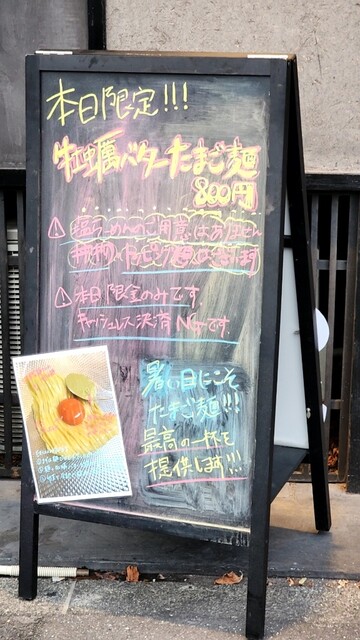 本日限定!!!
牡蠣バターたまご麺
800円
⚠塩らーめんのご用意はありません
⚠本日現金のみです
キャッシュレス決済NGです.
暑い日にこそ
たまご麺!!!
最高の一杯を
提供します!!!